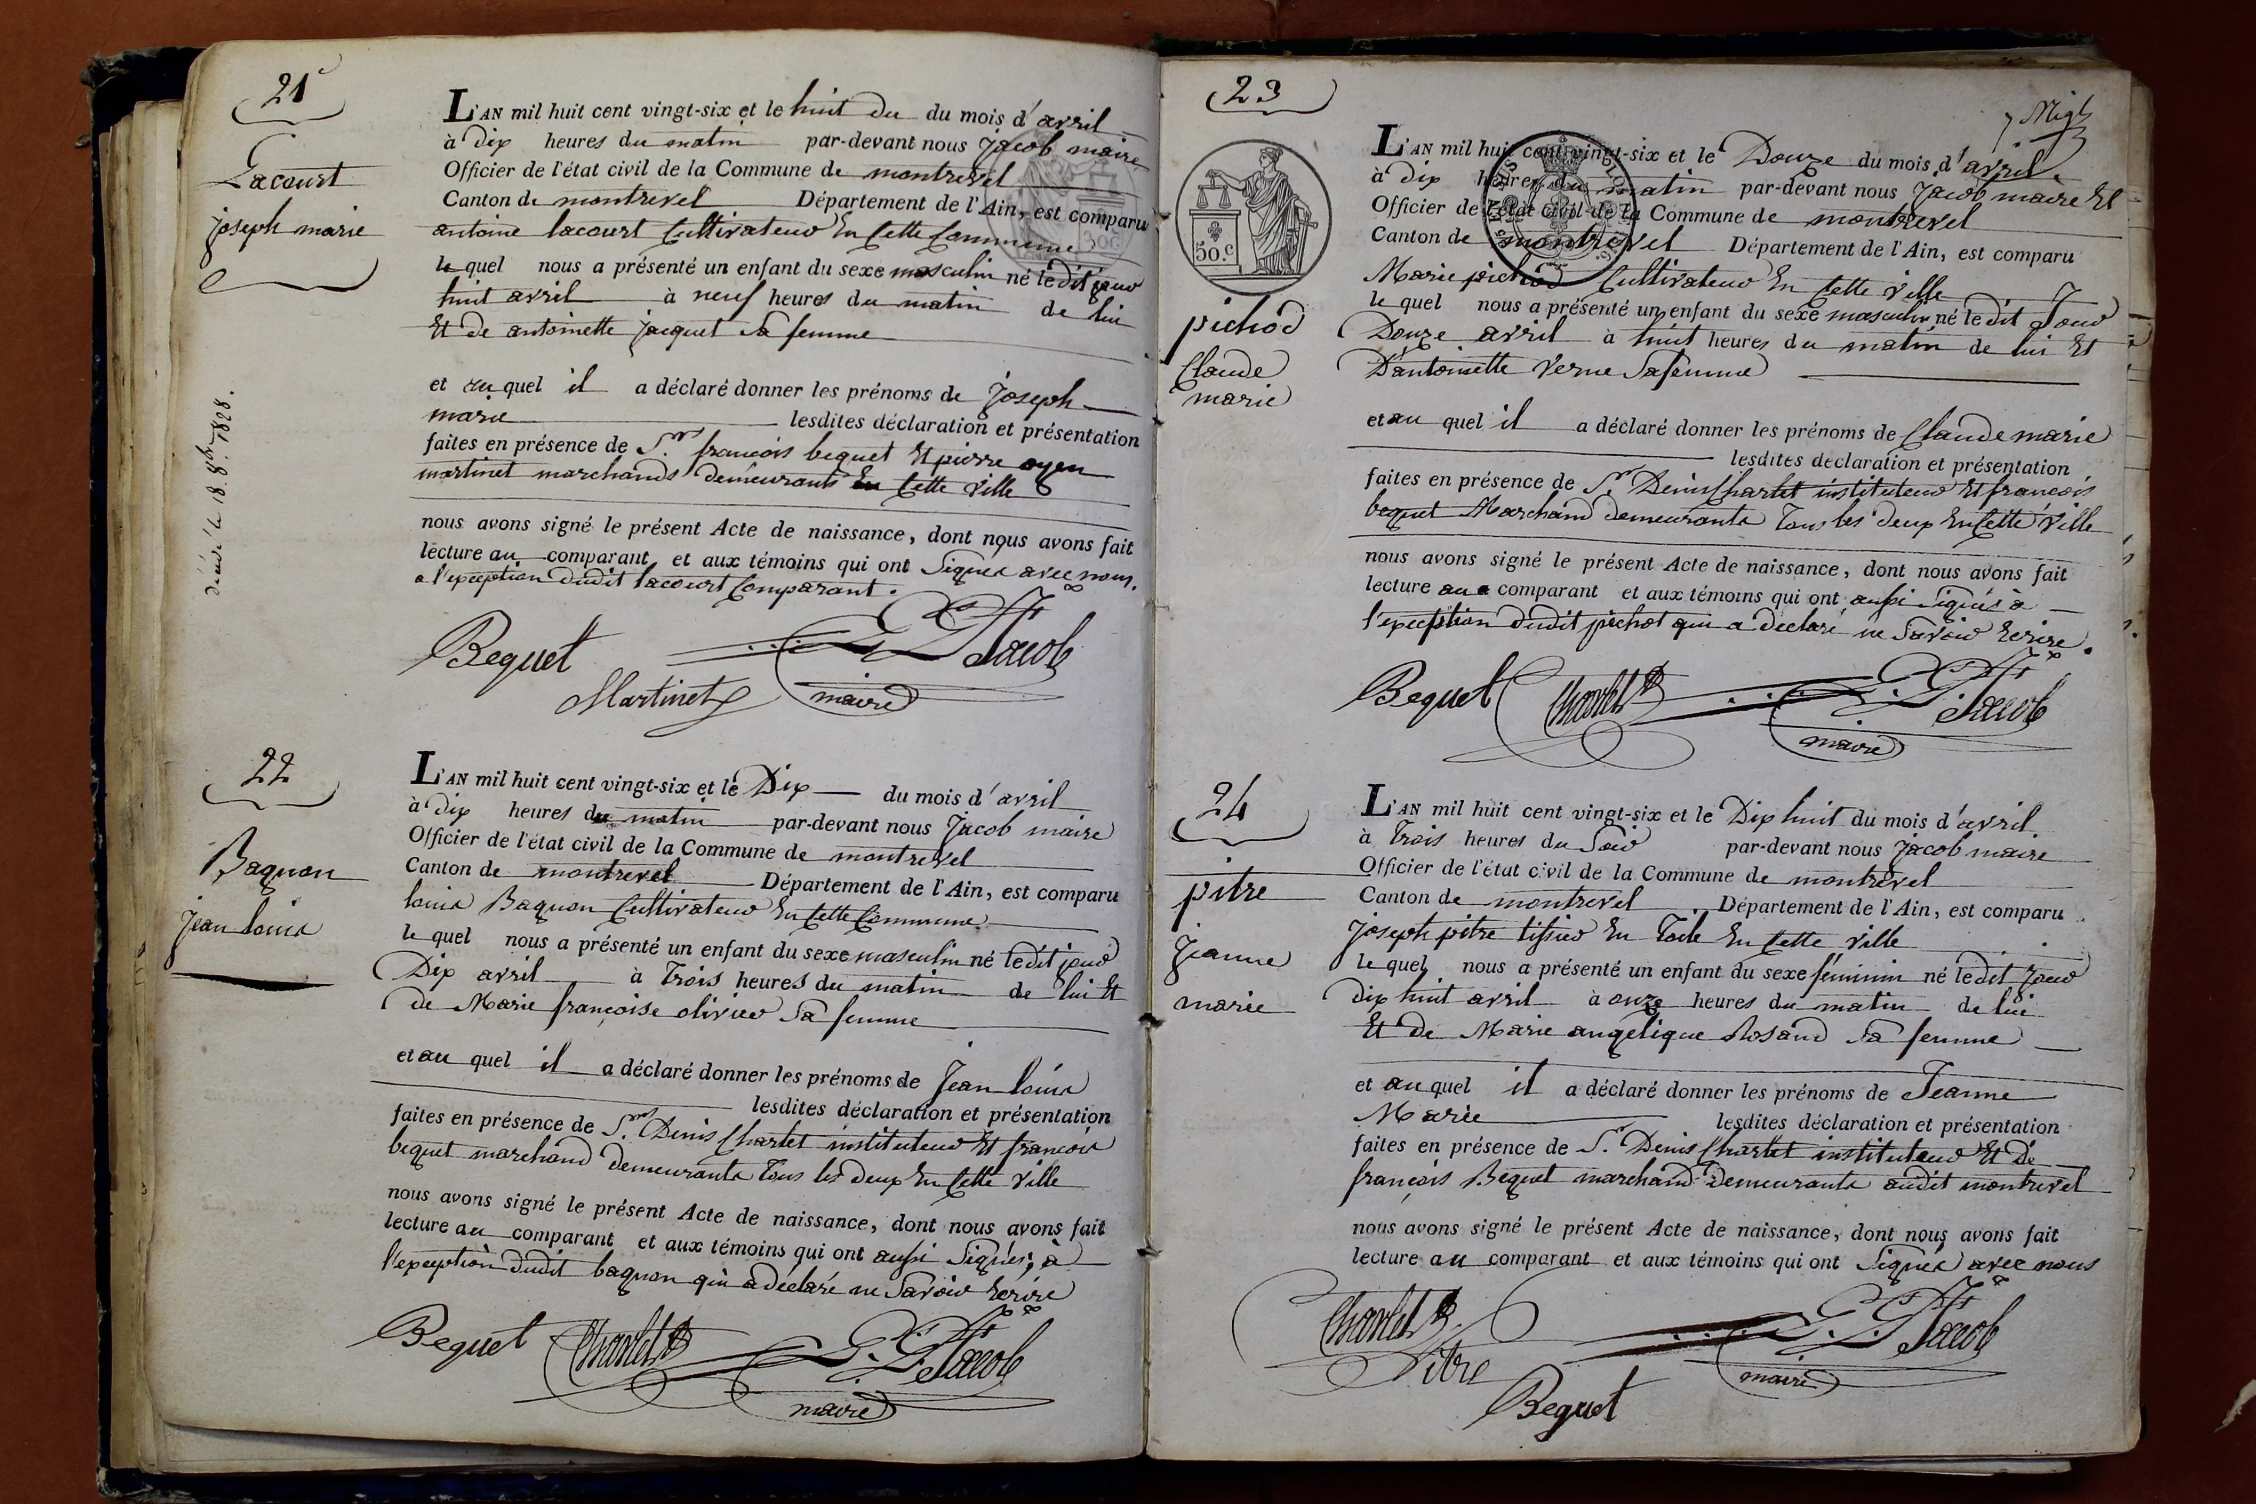 21e
Lacourt
joseph marie
décédé le 18. 8bre. 1828.
L'AN mil huit cent vingt-six et le huit du du mois d'avril
à dix heures du matin par-devant nous Jacob maire
Officier de l'état civil de la Commune de montrevel
Canton de montrevel Département de l'Ain, est comparu
antoine lacourt Cultivateur En Cette Commune
le quel nous a présenté un enfant du sexe masculin né le dit jour
huit avril à neuf heures du matin de lui
Et de antoinette jacquet Sa femme
et au quel il a déclaré donner les prénoms de Joseph
marie lesdites déclaration et présentation
faites en présence de Srs. françois bequet Et pierre
martinet marchands demeurants En Cette Ville
nous avons signé le présent Acte de naissance, dont nous avons fait
lecture au comparant et aux témoins qui ont Signés avec nous,
a l'exception dudit lacourt Comparant.
Bequet G. G. Jacob
Martinet maire
22
Baguon
jean louis
L'AN mil huit cent vingt-six et le Dix du mois d'avril
à dix heures du matin par-devant nous Jacob maire
Officier de l'état civil de la Commune de montrevel
Canton de montrevel Département de l'Ain, est comparu
louis Baguon Cultivateur En Cette Commune
le quel nous a présenté un enfant du sexe masculin né le dit jour
Dix avril à Trois heures du matin de lui Et
de Marie françoise olivier Sa femme
et au quel il a déclaré donner les prénoms de Jean louis
lesdites déclaration et présentation
faites en présence de Srs. Denis Charlet instituteur Et françois
bequet marchand demeurants Tous les deux En Cette Ville
nous avons signé le présent Acte de naissance, dont nous avons fait
lecture au comparant et aux témoins qui ont aussi Signés, à
l'exception dudit baguon qui a déclaré ne Savoir Ecrire
Bequet Charlet G. G. Jacob
maire
23
50.c
pichod
Claude
marie
L'AN mil huit cent vingt-six et le Douze du mois d'avril
à dix heures du matin par-devant nous Jacob maire Et
Officier de l'état civil de la Commune de montrevel
Canton de montrevel Département de l'Ain, est comparu
Marie pichod Cultivateur En Cette Ville
le quel nous a présenté un enfant du sexe masculin né le dit Jour
Douze avril à huit heures du matin de lui Et
D'antoinette Verne Sa femme
et au quel il a déclaré donner les prénoms de Claude marie
lesdites déclaration et présentation
faites en présence de Sr. Denis Charlet instituteur Et françois
bequet Marchand demeurants Tous les deux En Cette Ville
nous avons signé le présent Acte de naissance, dont nous avons fait
lecture au comparant et aux témoins qui ont aussi Signés à
l'exception dudit pichot qui a déclaré ne Savoir Ecrire.
Bequet Charlet G. G. Jacob
maire
24
pitre
Jeanne
marie
L'AN mil huit cent vingt-six et le Dix huit du mois d'avril
à Trois heures du Soir par-devant nous Jacob maire
Officier de l'état civil de la Commune de montrevel
Canton de montrevel Département de l'Ain, est comparu
Joseph pitre tissier En Toile En Cette Ville
le quel nous a présenté un enfant du sexe féminin né le dit Jour
dix huit avril à onze heures du matin de lui
Et de Marie angélique Rosand Sa femme
et au quel il a déclaré donner les prénoms de Jeanne
Marie lesdites déclaration et présentation
faites en présence de Sr. Denis Charlet instituteur Et De
françois Bequet marchand demeurants audit montrevel
nous avons signé le présent Acte de naissance, dont nous avons fait
lecture au comparant et aux témoins qui ont Signés avec nous
Charlet G. G. Jacob
Pitre maire
Bequet